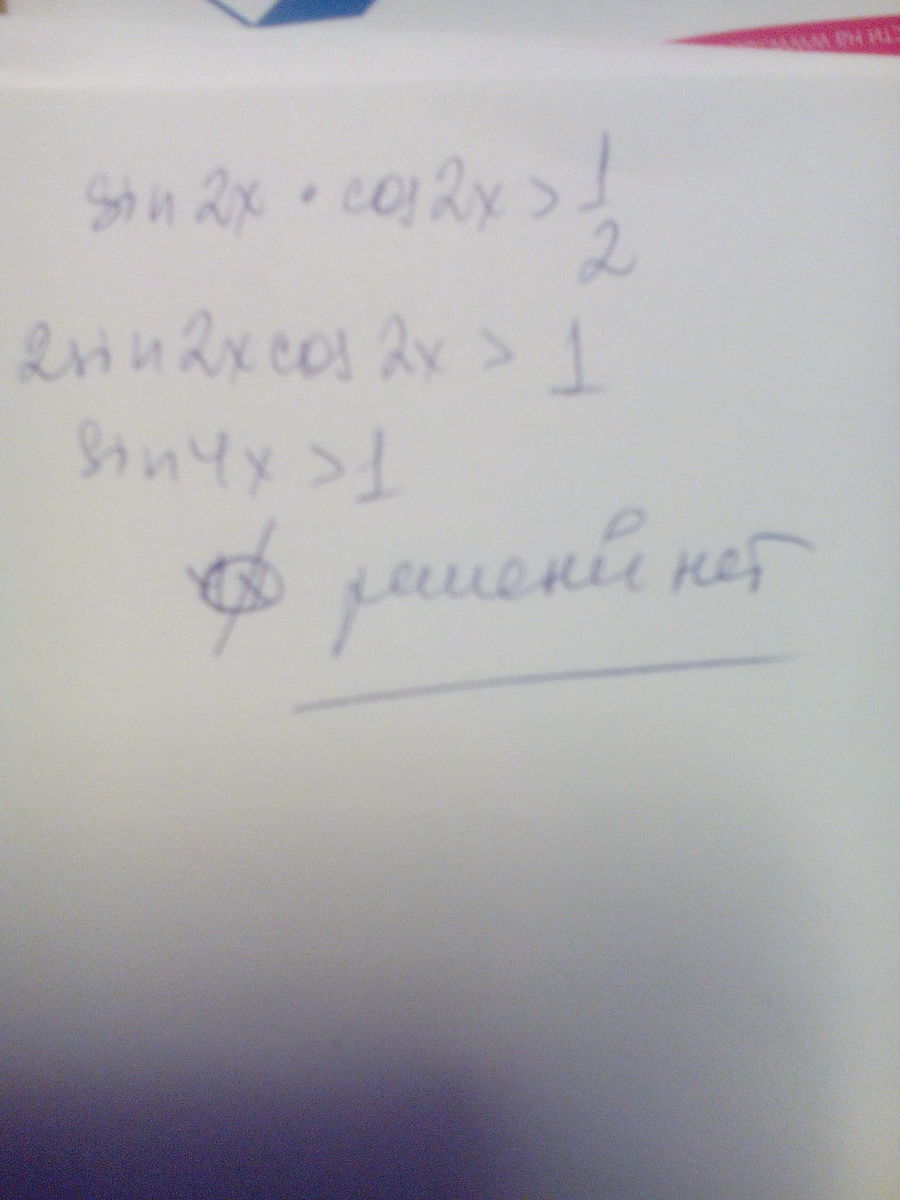 sin 2x • cos 2x > 1/2
2sin 2x cos 2x > 1
sin 4x > 1
∅ решений нет